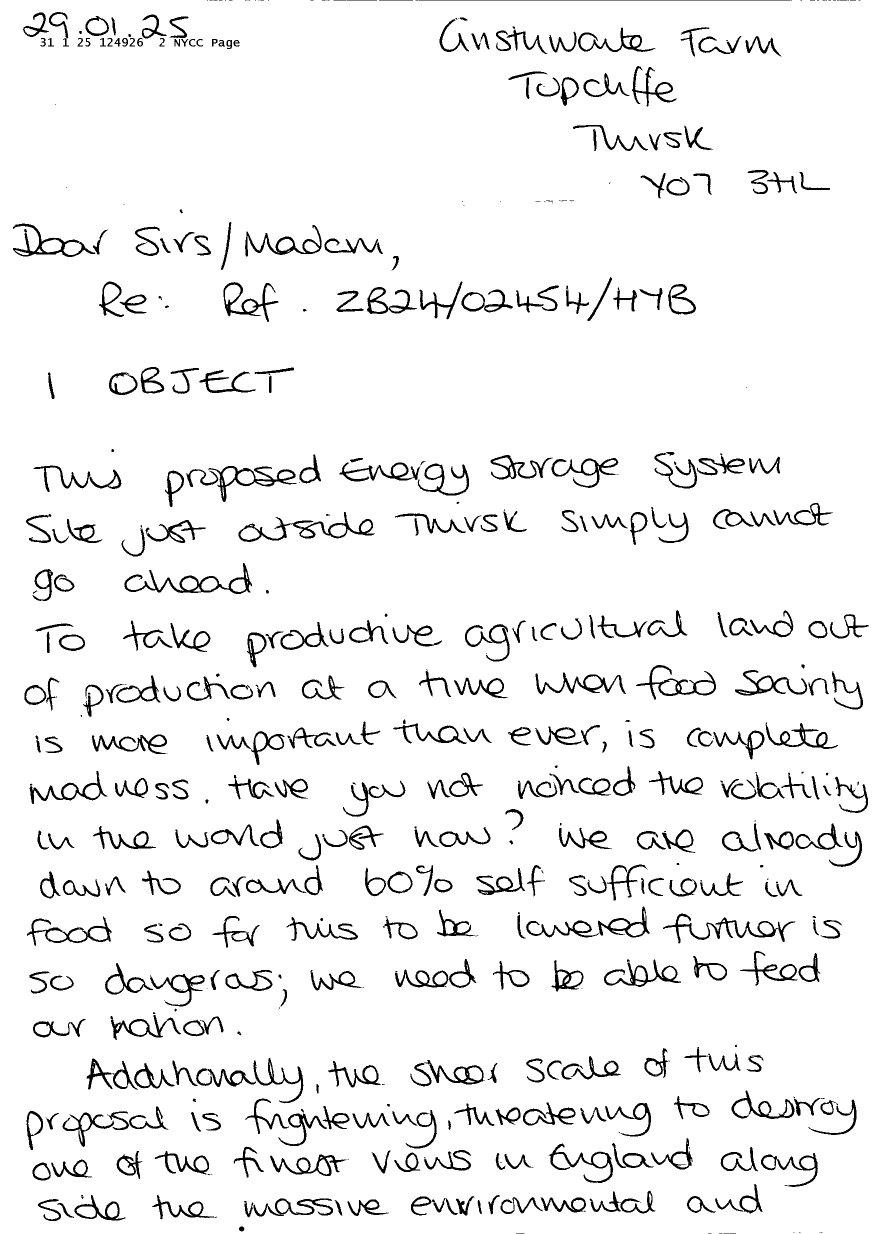 29.01.25
31 1 25 124926 2 NYCC Page
Gristhwaite Farm
Topcliffe
Thirsk
YO7 3HL
Dear Sirs/Madam,
Re: Ref. ZB24/02454/HYB
I OBJECT
This proposed Energy Storage System
Site just outside Thirsk simply cannot
go ahead.
To take productive agricultural land out
of production at a time when food security
is more important than ever, is complete
madness. Have you not noticed the volatility
in the world just now? We are already
down to around 60% self sufficient in
food so for this to be lowered further is
so dangerous; we need to be able to feed
our nation.
Additionally, the sheer scale of this
proposal is frightening, threatening to destroy
one of the finest views in England along
side the massive environmental and